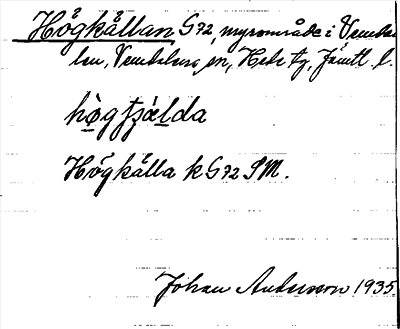 Högkällan G72, myrområde i Vemda-
len, Vemdalens sn, Hede tg, Jämtl. l.
hògfɟälda
Högkälla k G72 SM.
Johan Anderson 1935.